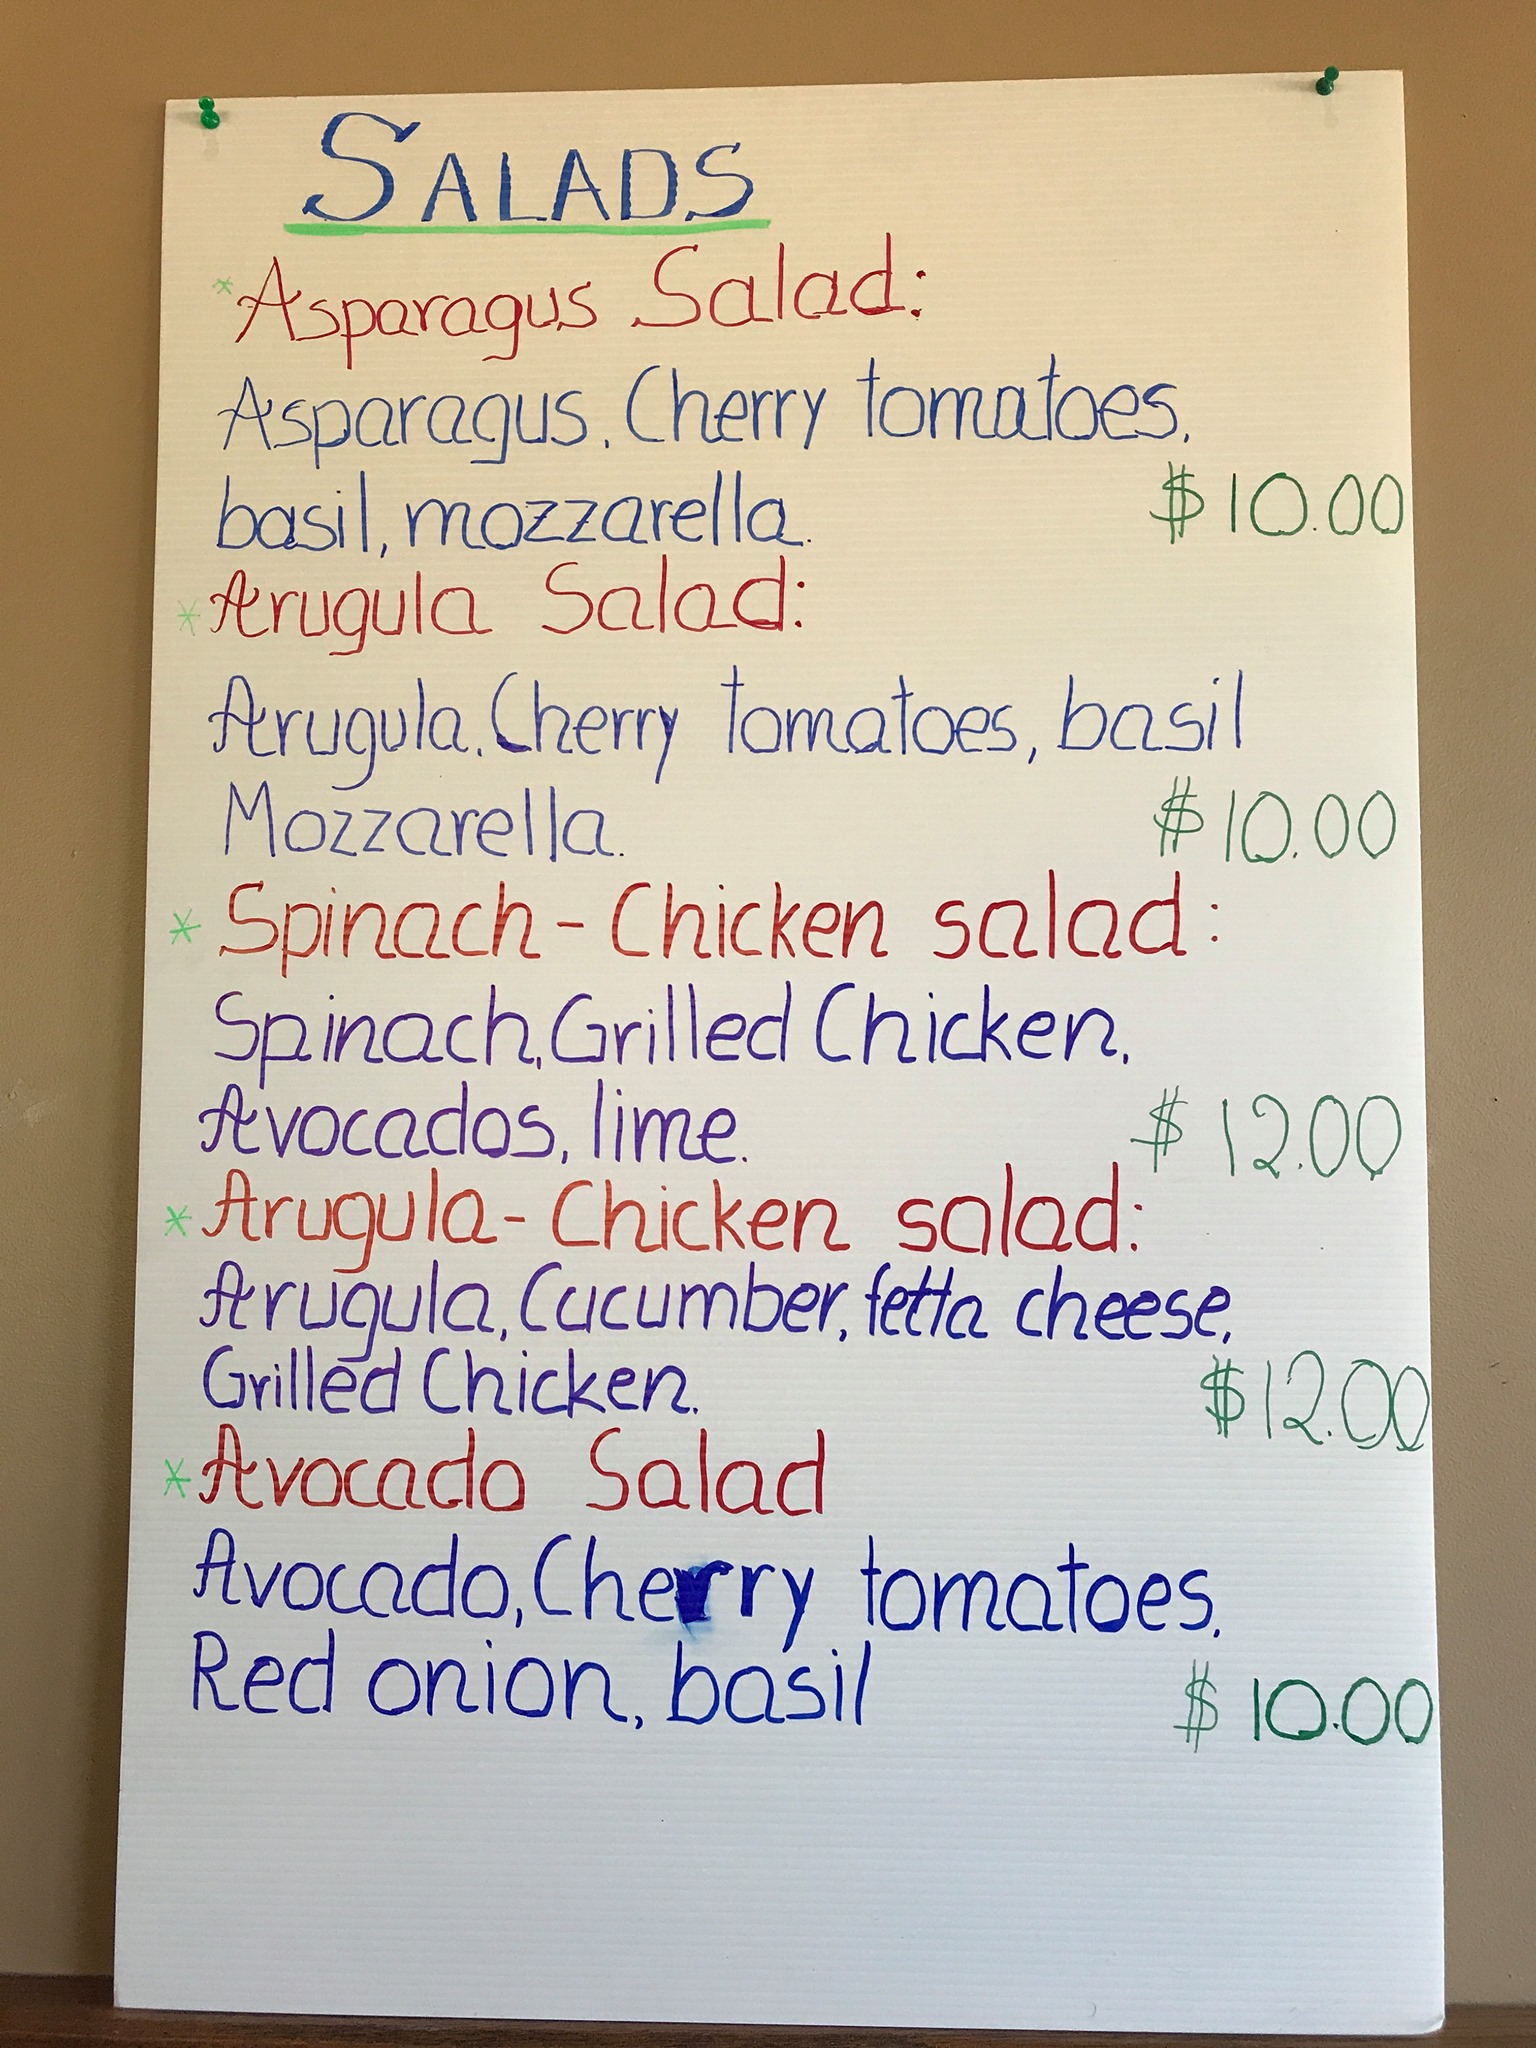 SALADS
* Asparagus Salad:
Asparagus, Cherry tomatoes,
basil, mozzarella. $10.00
* Arugula Salad:
Arugula, Cherry tomatoes, basil
Mozzarella. $10.00
* Spinach - Chicken salad:
Spinach, Grilled Chicken,
Avocados, lime. $12.00
* Arugula - Chicken salad:
Arugula, Cucumber, fetta cheese,
Grilled Chicken. $12.00
* Avocado Salad
Avocado, Cherry tomatoes,
Red onion, basil $10.00